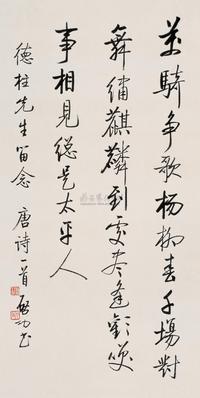 萬騎争歌楊柳春千場對
舞繡麒麟到處盡逢歡笑
事相見總是太平人
德柱先生留念 唐诗一首 啟功书